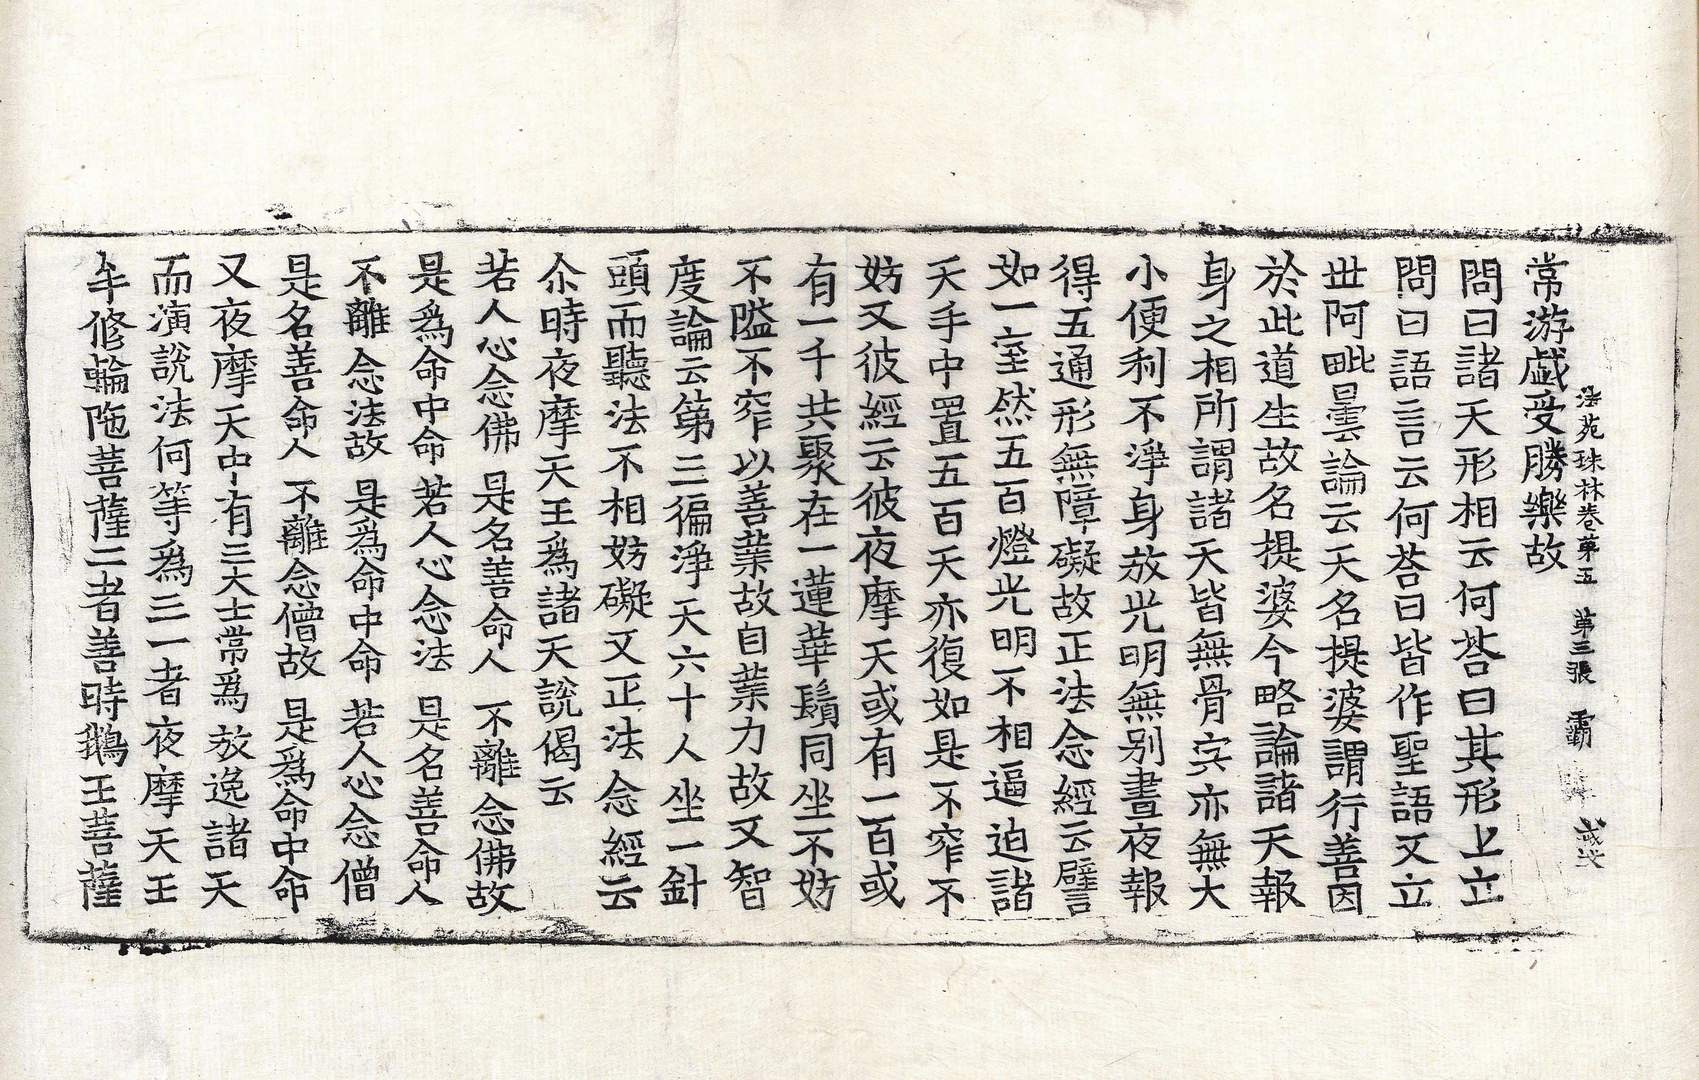 法苑珠林卷第五　第三張　覇
常游戲受勝樂故
問曰諸天形相云何荅曰其形上立
問曰語言云何荅曰皆作聖語又立
世阿毗曇論云天名提婆謂行善因
於此道生故名提婆今略論諸天報
身之相所謂諸天皆無骨宍亦無大
小便利不淨身放光明無别晝夜報
得五通形無障礙故正法念經云譬
如一室然五百燈光明不相逼迫諸
天手中置五百天亦復如是不窄不
妨又彼經云彼夜摩天或有一百或
有一千共聚在一蓮華鬚同坐不妨
不隘不窄以善業故自業力故又智
度論云第三徧淨天六十人坐一針
頭而聽法不相妨礙又正法念經云
尒時夜摩天王爲諸天說偈云
若人心念佛　是名善命人　不離念佛故
是爲命中命　若人心念法　是名善命人
不離念法故　是爲命中命　若人心念僧
是名善命人　不離念僧故　是爲命中命
又夜摩天中有三大士常爲放逸諸天
而演說法何等爲三一者夜摩天王
牟修輪陁菩薩二者善時鵝王菩薩